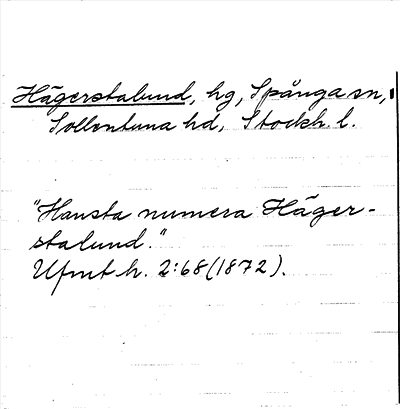 Hägerstalund, hg, Spånga sn,
Sollentuna hd, Stockh. l.
"Hansta numera Häger-
stalund."
Ufmt h. 2:68 (1872).